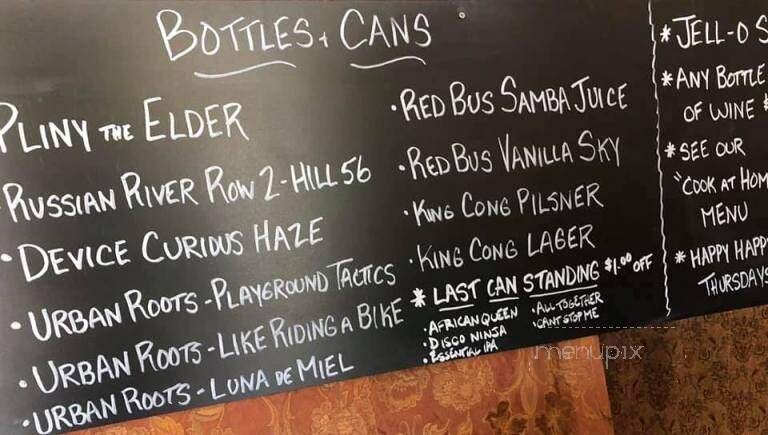 BOTTLES + CANS
PLINY THE ELDER
RUSSIAN RIVER ROW 2-HILL 56
• DEVICE CURIOUS HAZE
• URBAN ROOTS - PLAYGROUND TACTICS
• URBAN ROOTS - LIKE RIDING A BIKE
• URBAN ROOTS - LUNA DE MIEL
• RED BUS SAMBA JUICE
• RED BUS VANILLA SKY
• KING CONG PILSNER
• KING CONG LAGER
* LAST CAN STANDING $1.00 OFF
• AFRICAN QUEEN
• DISCO NINJA
• ESSENTIAL IPA
• ALL TOGETHER
• CANT STOP ME
* JELL-O S
* ANY BOTTLE
OF WINE $
* SEE OUR
"COOK AT HOM
MENU
* HAPPY HAPP
THURSDAYS
menupix